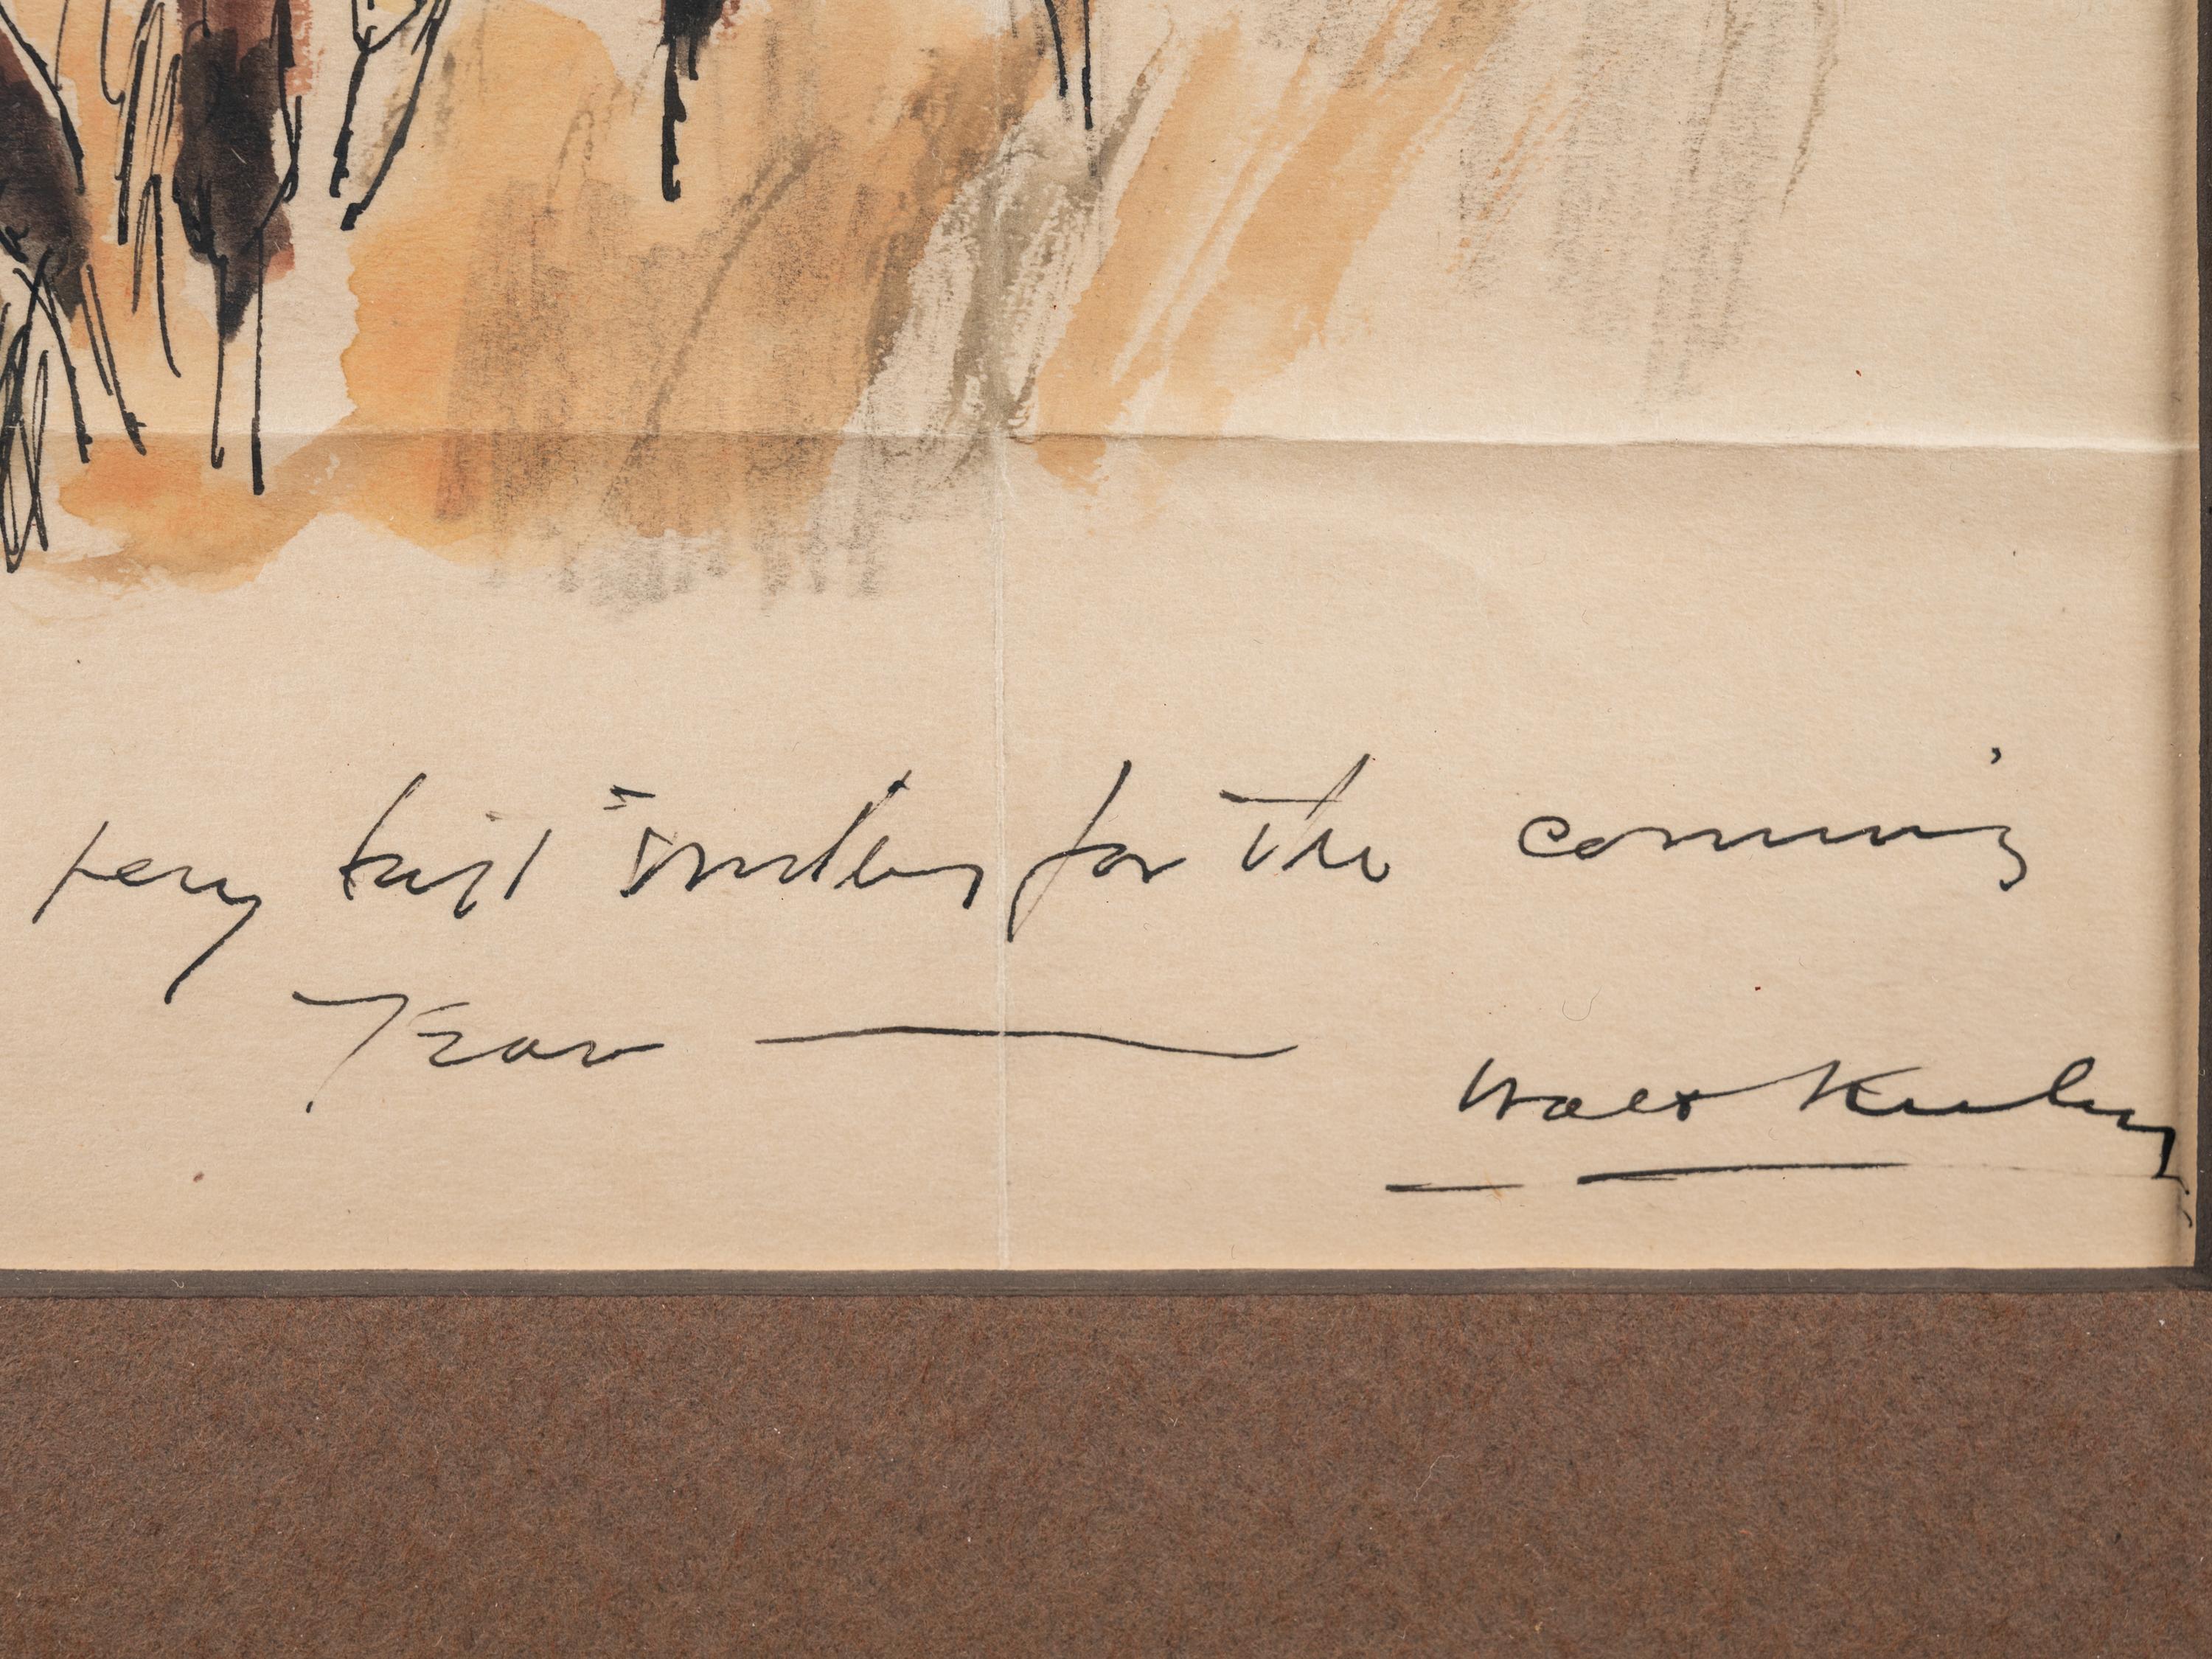 very best for the coming
Year —
Walt Kuhn